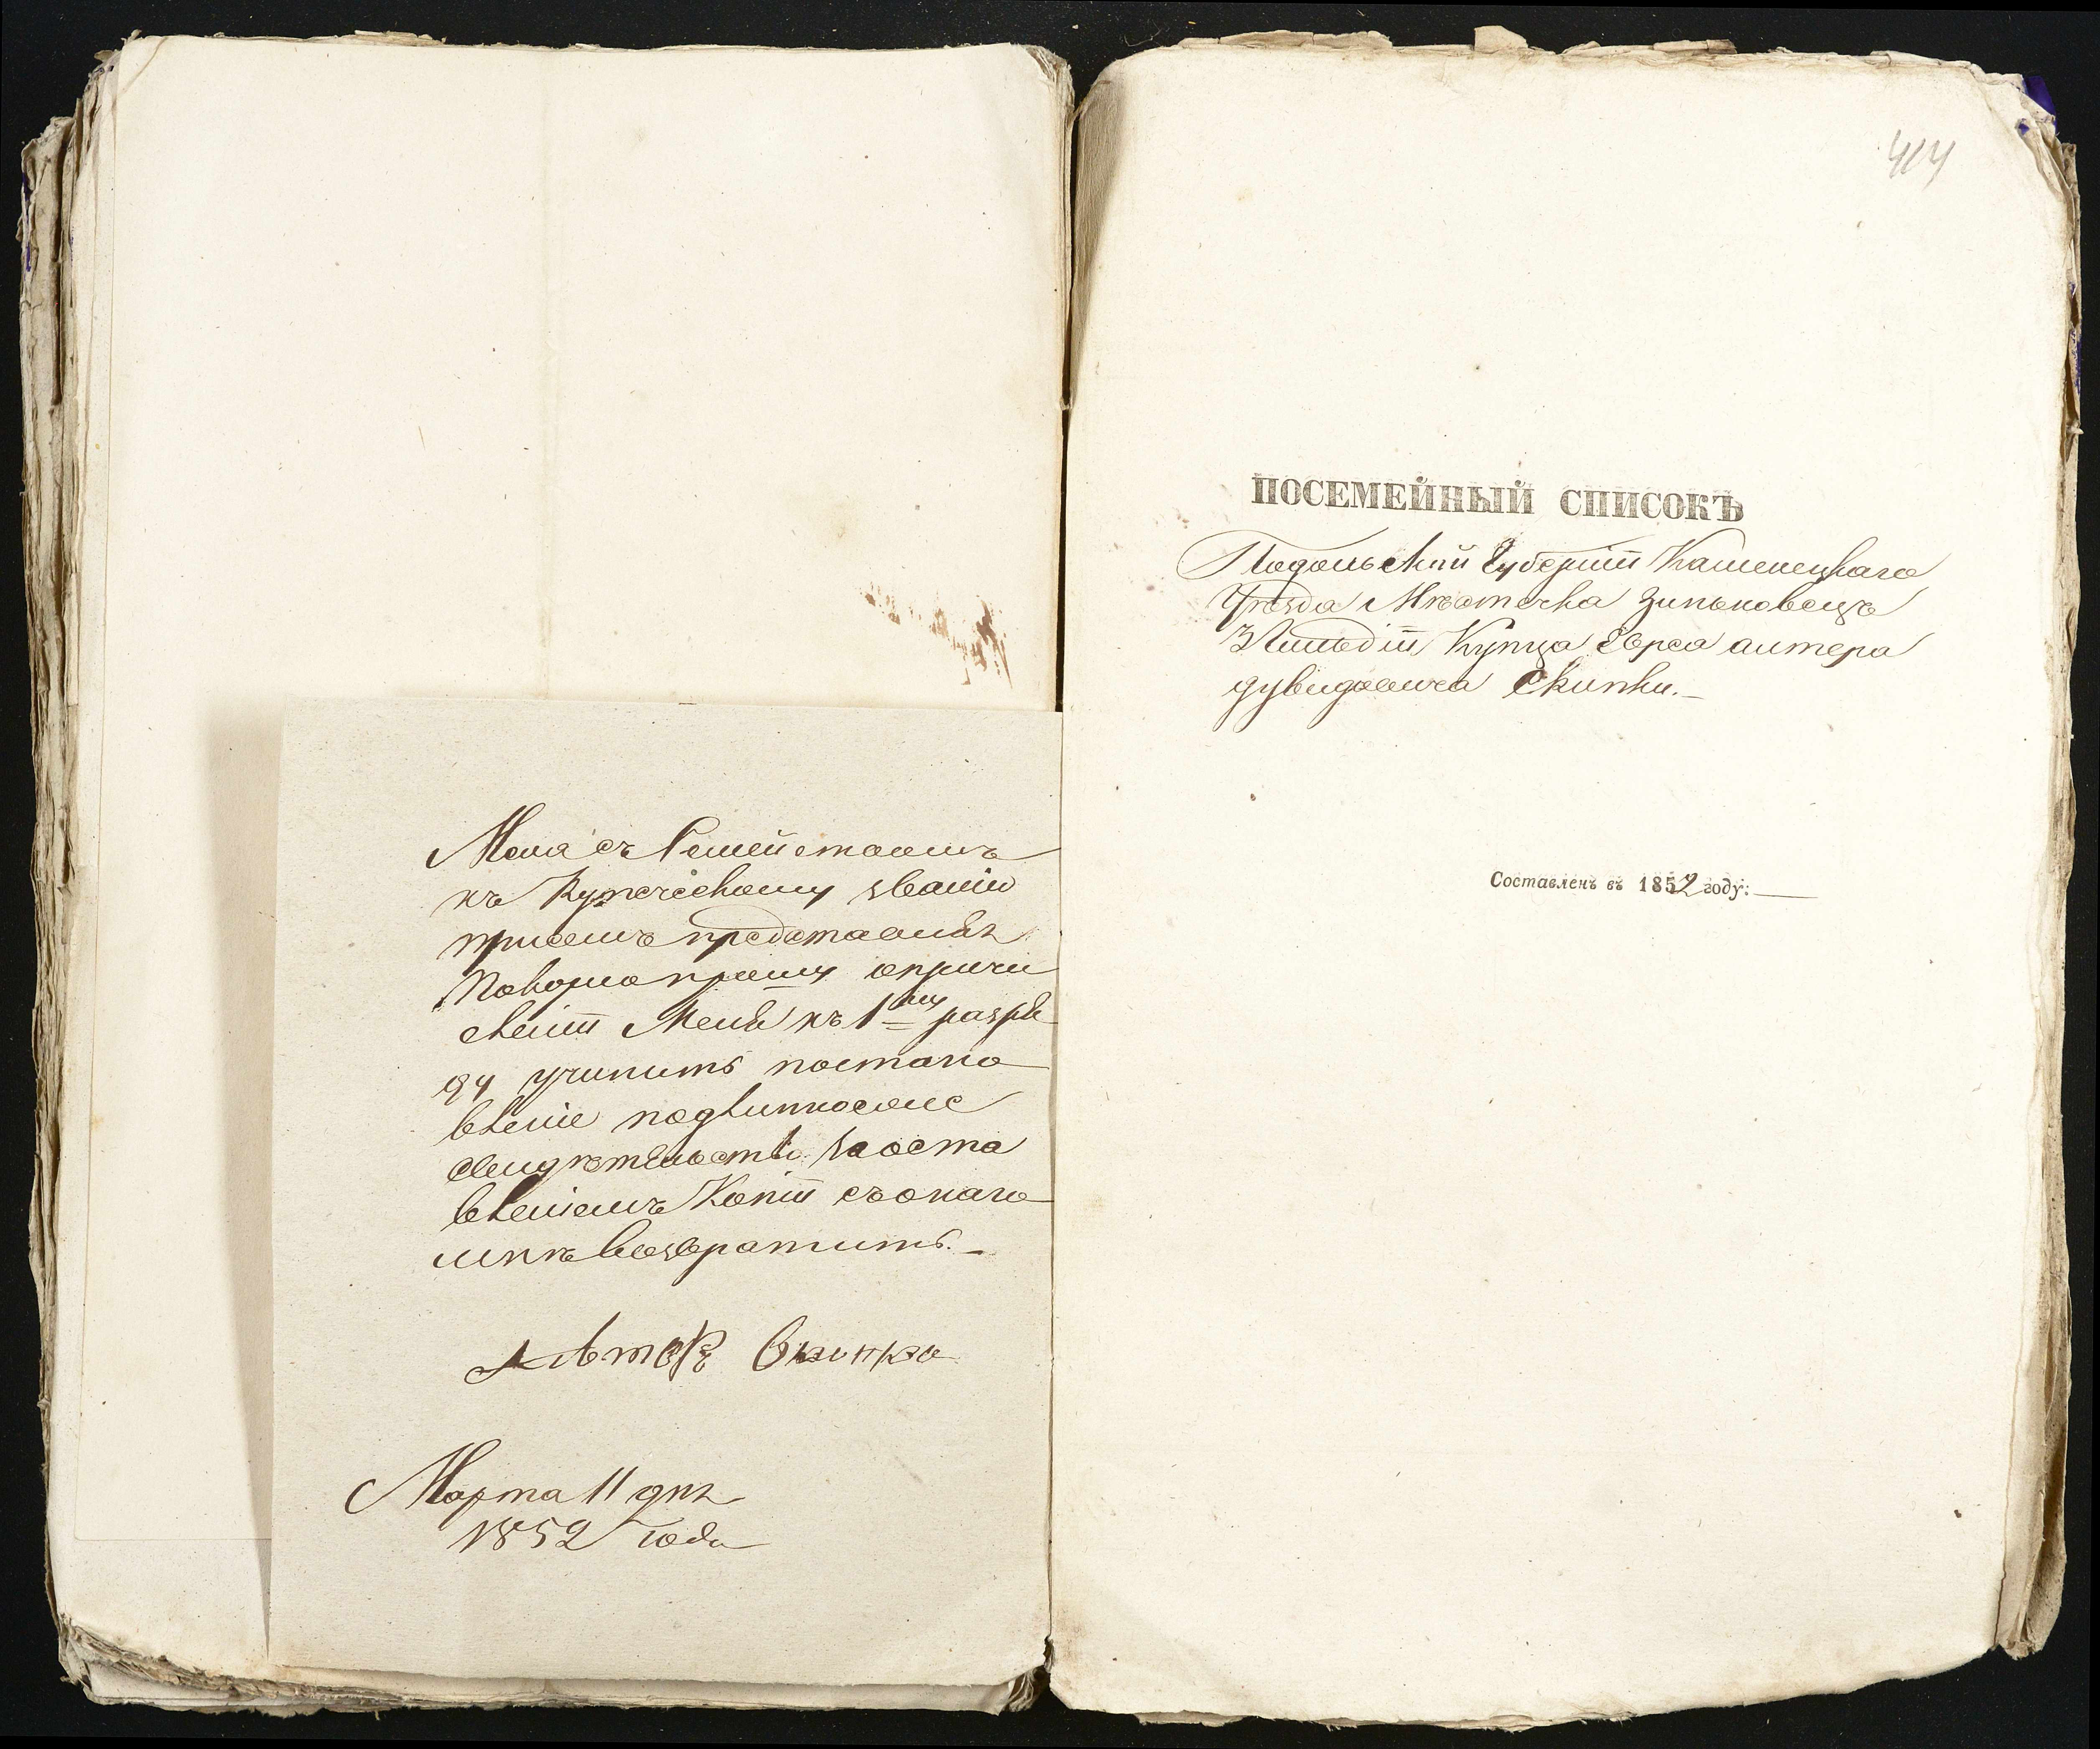 Меня съ Семействомъ
къ Купеческому званію
присемъ представляя
Покорно прошу опричи
сленіи Меня къ 1му разря
ду учинить постано
вленіе подлинноеже
свидѣтельство заоста
вленіемъ Копіи съонаго
мнѣ возвратить.
Антеръ Скипка
Марта 11 дня
1852 года
414
ПОСЕМЕЙНЫЙ СПИСОКЪ
Подольской Губерніи Каменецкаго
Уѣзда Мѣстечка Зиньковецъ
3 Гильдіи Купца Еврея антера
дувидовича Скипки.
Составленъ въ 1852 году: